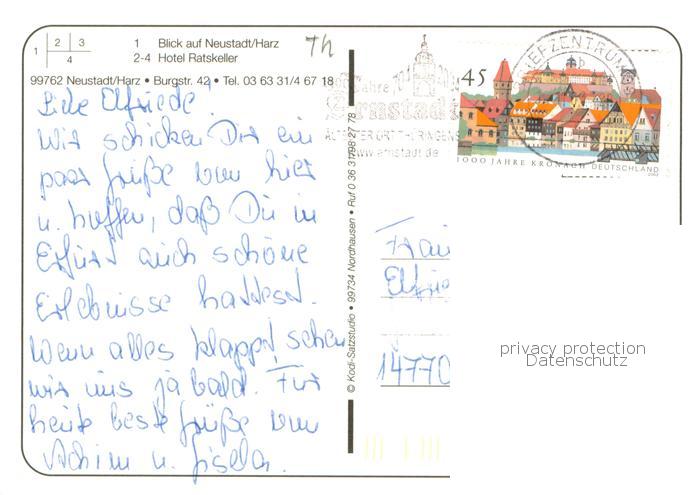 1 2 3 4
1 Blick auf Neustadt/Harz
2-4 Hotel Ratskeller
Th
99762 Neustadt/Harz • Burgstr. 42 • Tel. 03 63 31/4 67 18
Liebe Elfriede!
Wir schicken Dir ein
paar Grüße von hier
u. hoffen, daß Du in
Erfurt auch schöne
Erlebnisse hattest.
Wenn alles klappt, sehen
wir uns ja bald. Für
heute beste Grüße von
Achim u. Gisela.
© Kodi-Satzstudio • 99734 Nordhausen • Ruf 0 36 31/98 27 78
Jahre
Arnstadt
ÄLTESTER ORT THÜRINGENS
www.arnstadt.de
BRIEFZENTRUM
45
1000 JAHRE KRONACH DEUTSCHLAND
2003
Frau
Elfrie
14770
privacy protection
Datenschutz